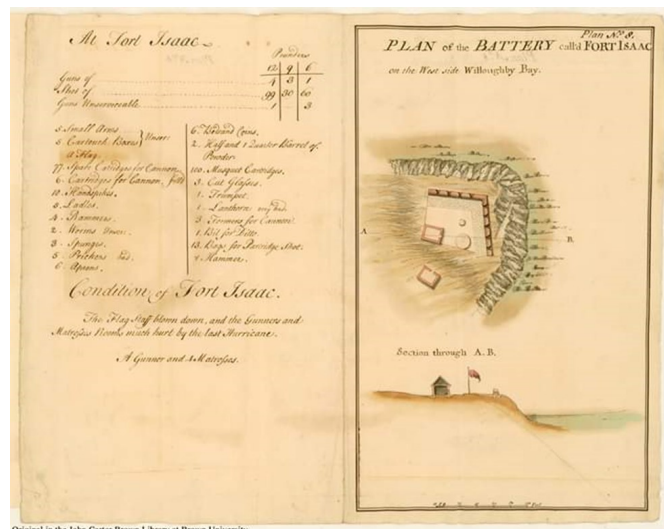 At Fort Isaac
Pounders
12 9 6
Guns of 4 3 1
Shot of 99 30 60
Guns Unserviceable 1 3
5. Small Arms
5. Cartouch Boxes } Unser:
a Flag.
77. Spare Cartridges for Cannon
6. Cartridges for Cannon fill'd
10. Handspikes.
3. Ladles.
4. Rammers.
2. Worms Unser:
3. Spunges.
5. Prickers bad.
6. Aprons.
6. Powder
2. Half and 1 Quarter Barrel of
Powder.
100. Musquet Cartridges.
3. Glasses.
1. Trumpet.
1. Lanthorn
3. Formers for Cannon
1. Bit for Ditto.
13. Bags for Partridge Shot.
Hammer.
Condition of Fort Isaac.
The Flag Staff blown down, and the Gunners and
Matrosses Rooms much hurt by the last Hurricane.
A Gunner and 4 Matrosses.
Plan No. 8.
PLAN of the BATTERY call'd FORT ISAAC
on the West side Willoughby Bay.
A
B
Section through A. B.
Original in the John Carter Brown Library at Brown University